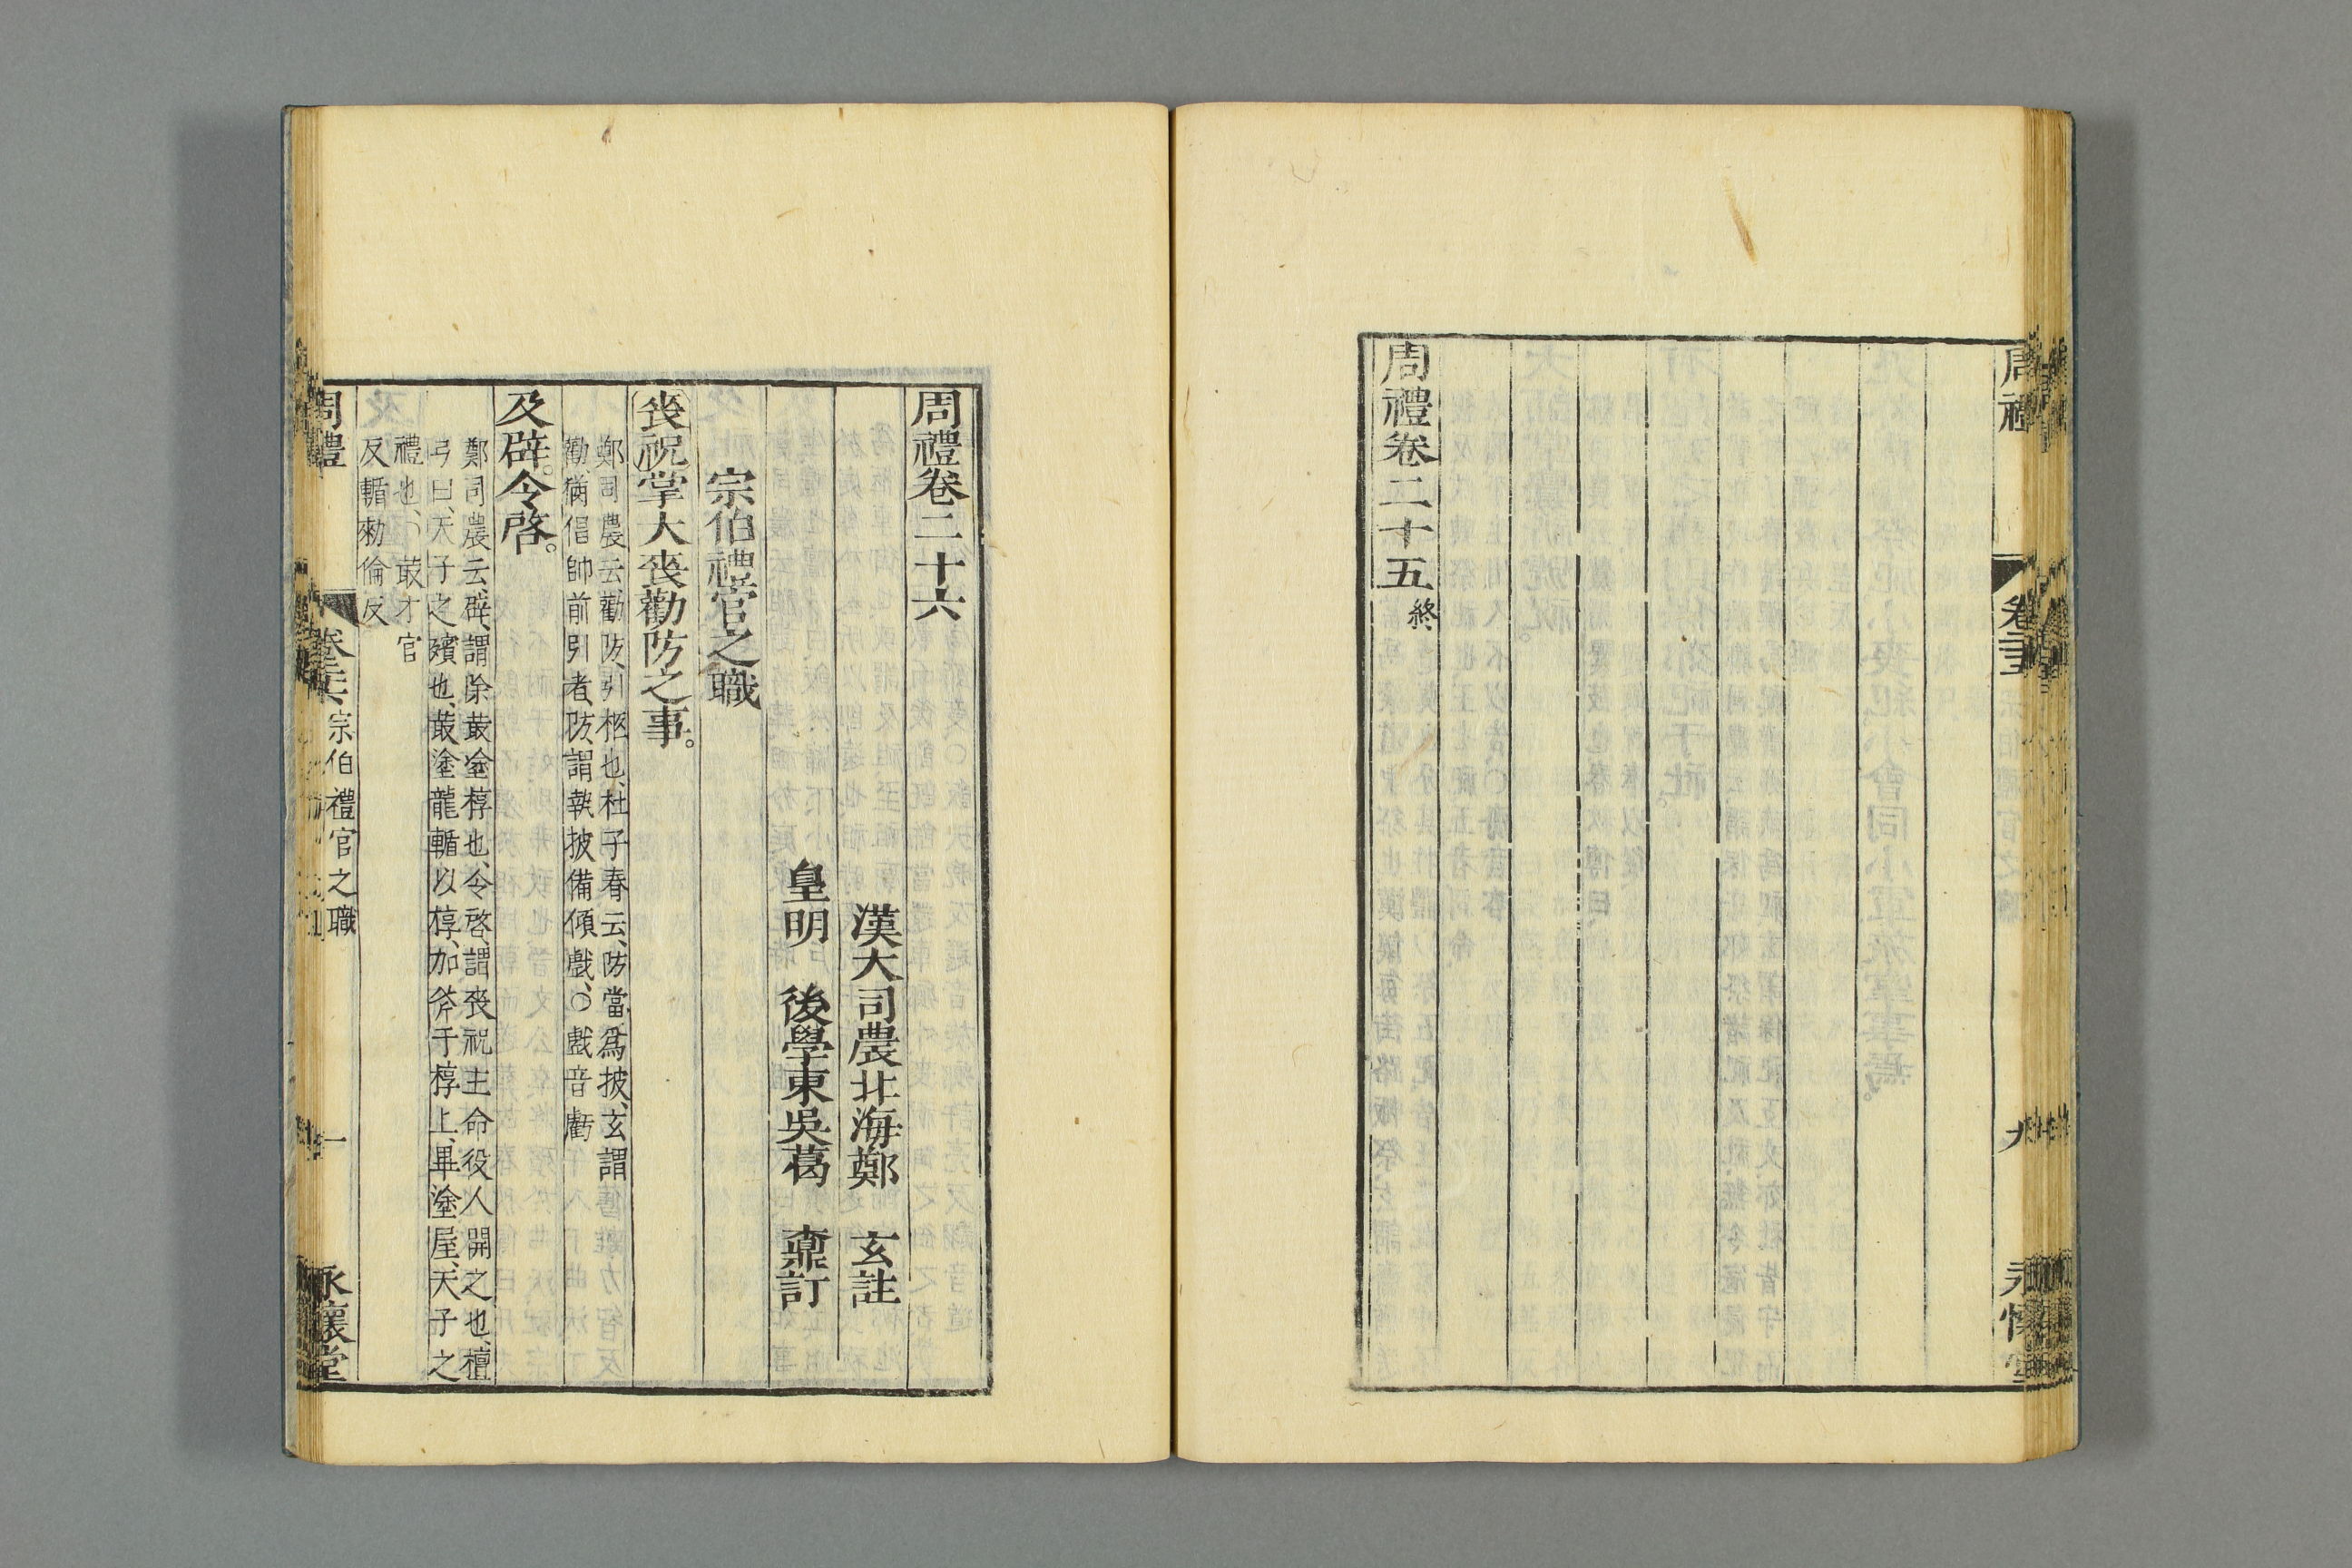 周禮
卷二十五
九
永懷堂
周禮卷二十五終
周禮卷二十六
漢大司農北海鄭 玄註
皇明 後學東吳葛 鼐訂
宗伯禮官之職
喪祝掌大喪勸防之事。
鄭司農云、勸防、引柩也、杜子春云、防當爲披、玄謂
勸猶倡帥前引者、防謂執披備傾戲、○戲音虧
及辟。令啓。
鄭司農云、辟、謂除菆塗椁也、令啓、謂喪祝主命役人開之也、檀
弓曰、天子之殯也、菆塗龍輴以椁、加斧于椁上、畢塗屋、天子之
禮也、○菆才官
反輴勑倫反
周禮
卷二十六
宗伯禮官之職
一
永懷堂